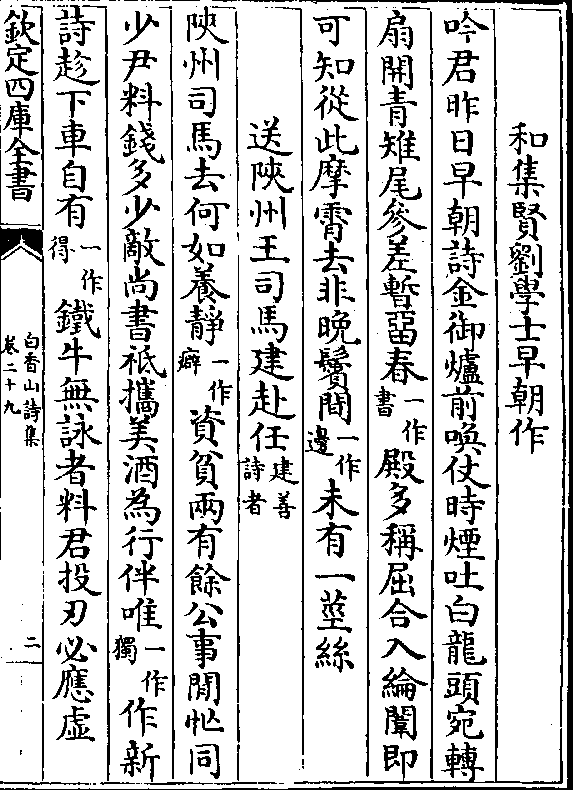 和集賢劉學士早朝作
吟君昨日早朝詩金御爐前喚仗時煙吐白龍頭宛轉
扇開青雉尾參差暫留春一作書殿多稱屈合入綸闈即
可知從此摩霄去非晚鬢間一作邊未有一莖絲
送陜州王司馬建赴任建善詩者
陜州司馬去何如養靜一作癖資貧兩有餘公事閒忙同
少尹料錢多少敵尚書祗攜美酒為行伴唯一作獨作新
詩趁下車自有一作得鐵牛無詠者料君投刃必應虛
欽定四庫全書
白香山詩集
卷二十九
二